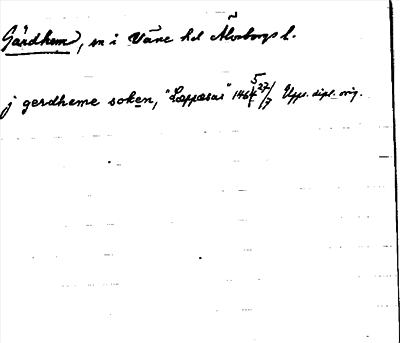 Gärdhem, sn i Väne hd Älvsborgs l.
j gerdheme soken, "Læppæsas" 1465 27/7 Uppl. dipl. orig.